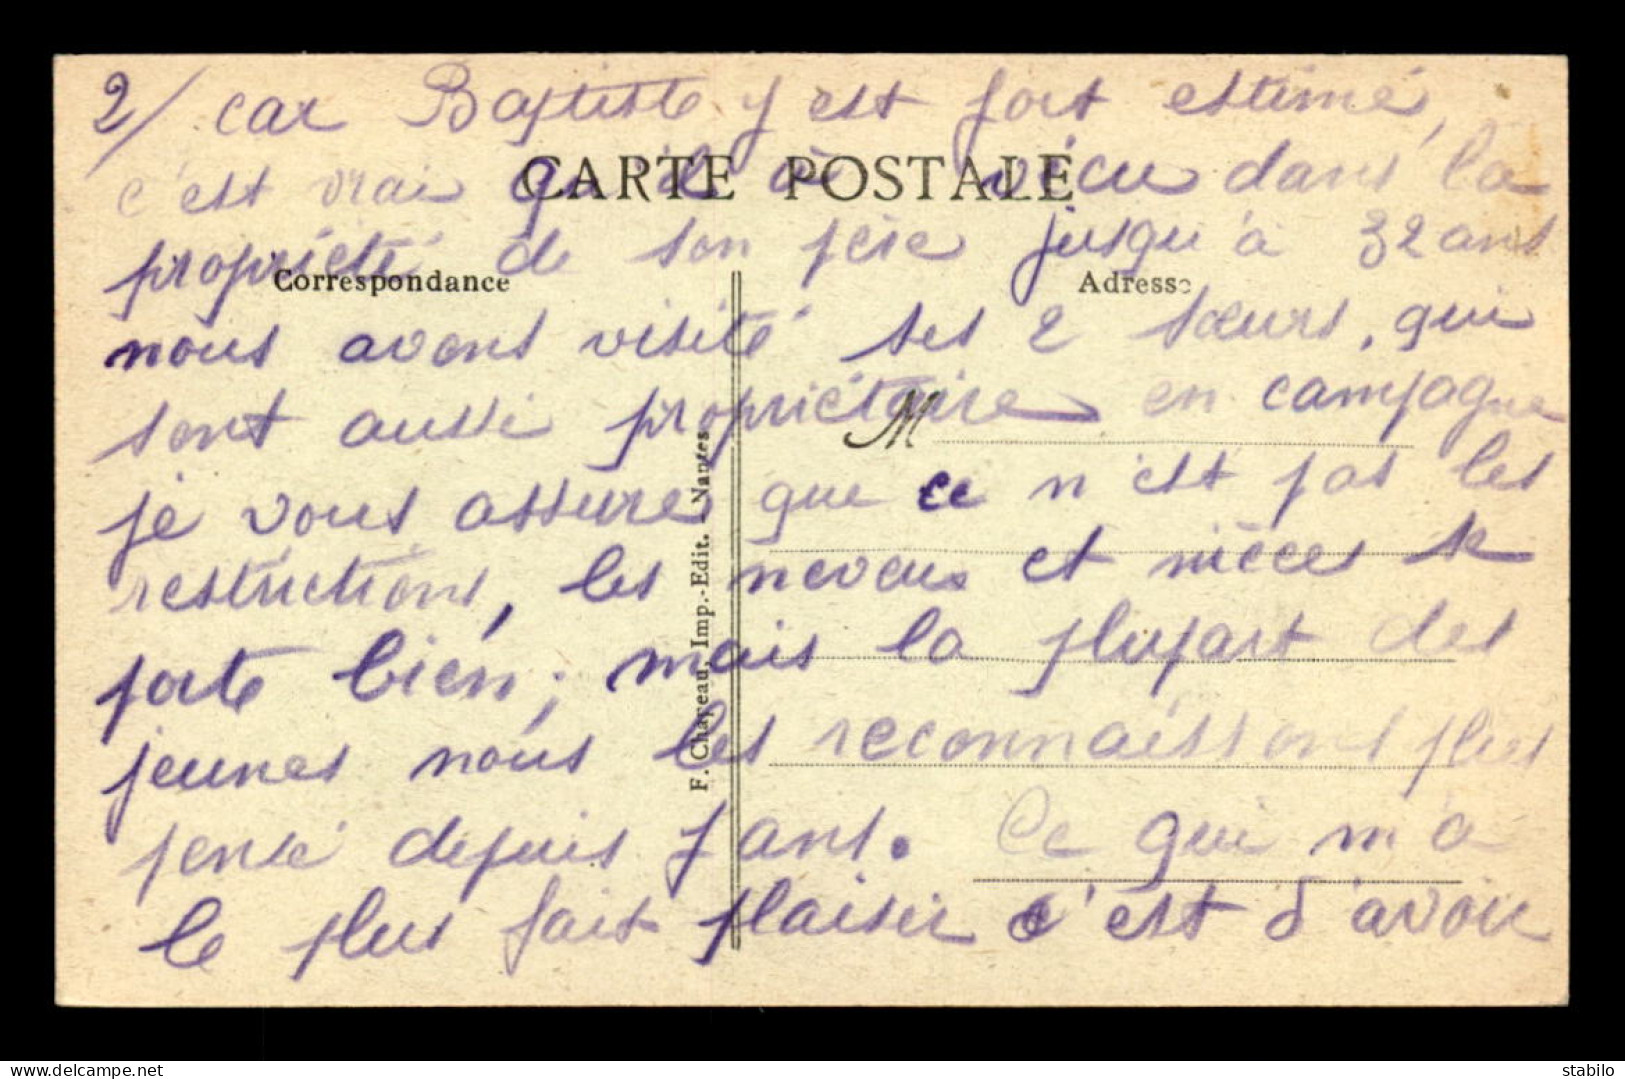 2/ car Baptiste y est fort estimé,
CARTE POSTALE
c'est vrai qu'il a vécu dans la
propriété de son père jusqu'à 32 ans
Correspondance
Adresse
nous avons visité ses 2 sœurs, qui
sont aussi propriétaire en campagne
M
je vous assure que ce n'est pas les
restrictions, les neveux et nièces se
porte bien; mais la plupart des
jeunes nous les reconnaissons plus
pensé depuis 7 ans. Ce qui m'a
le plus fait plaisir c'est d'avoir
F. Chapeau, Imp.-Edit. - Nantes
delcampe.net
stabilo